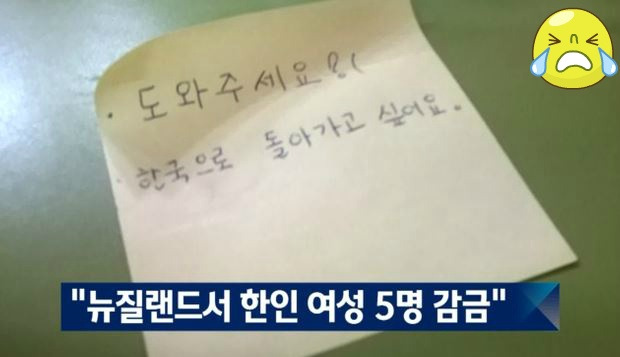 · 도와주세요!!
· 한국으로 돌아가고 싶어요.
"뉴질랜드서 한인 여성 5명 감금"